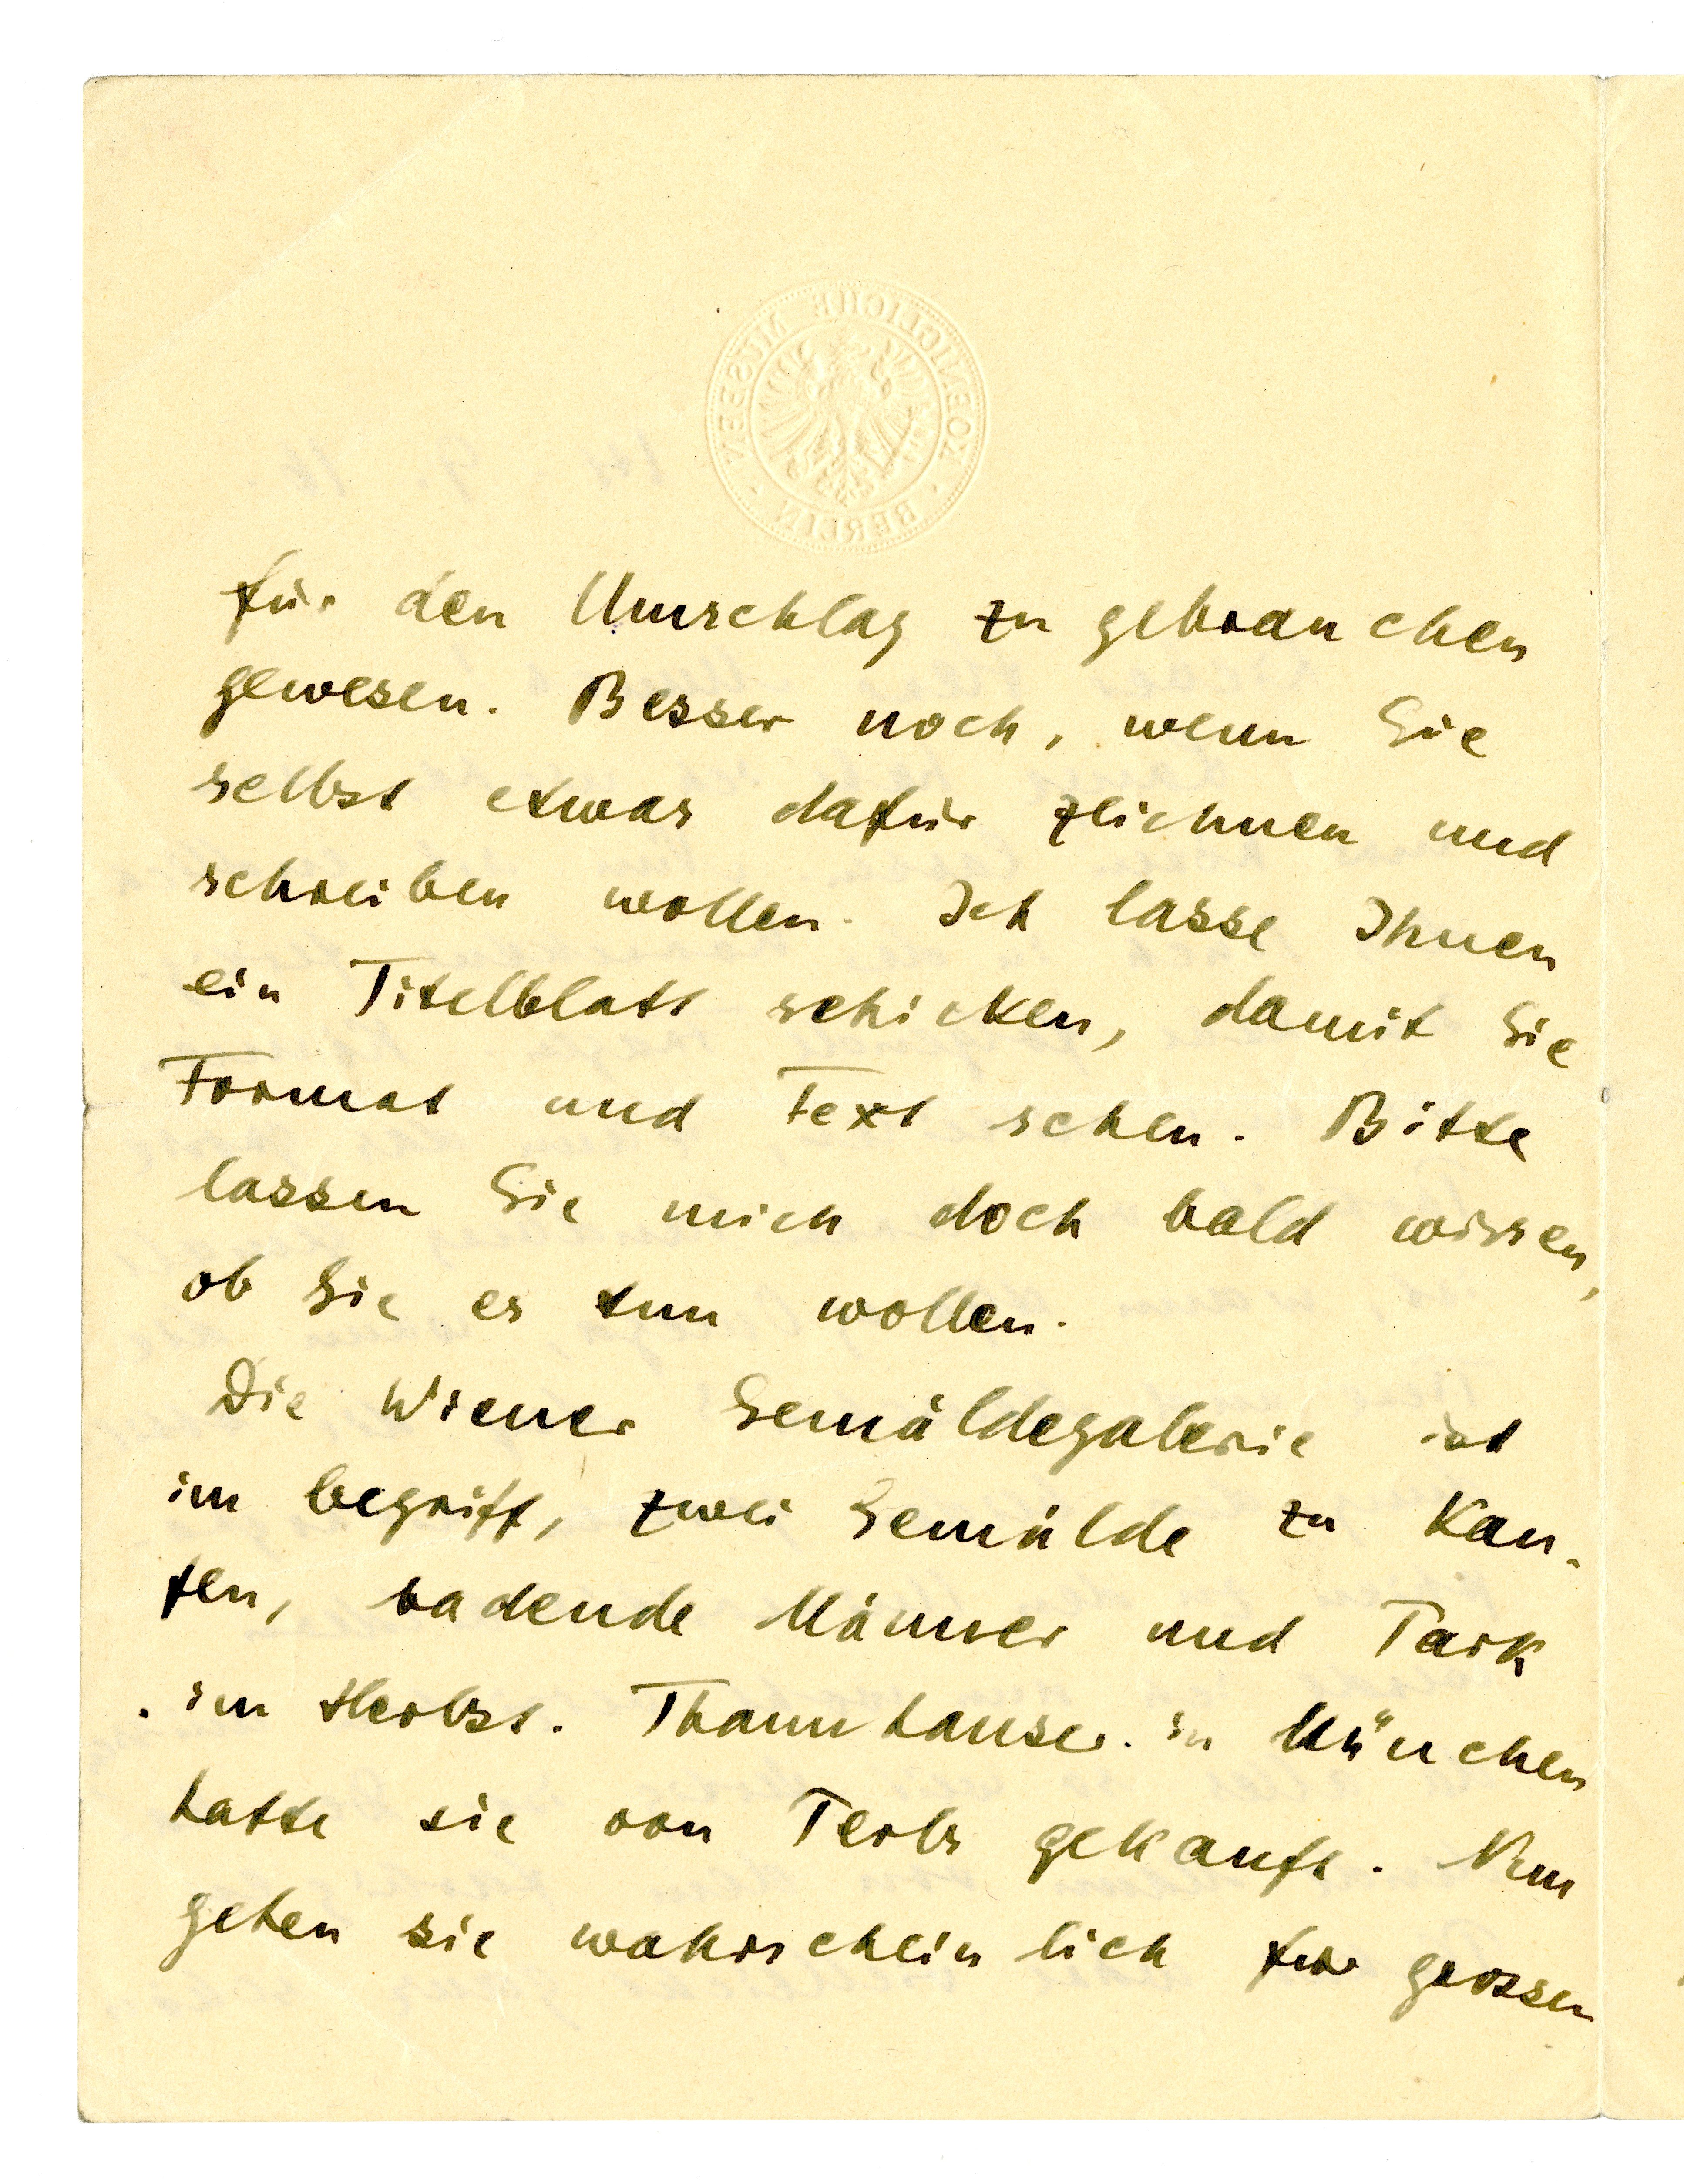 KOENIGLICHE MUSEEN
BERLIN
für den Umschlag zu gebrauchen
gewesen. Besser noch, wenn Sie
selbst etwas dafür zeichnen und
schreiben wollen. Ich lasse Ihnen
ein Titelblatt schicken, damit Sie
Format und Text sehen. Bitte
lassen Sie mich doch bald wissen,
ob Sie es tun wollen.
Die Wiener Gemäldegalerie ist
im begriff, zwei Gemälde zu kau-
fen, badende Männer und Park
im Herbst. Thannhauser in München
hatte sie von gekauft. Nun
gehen sie wahrscheinlich für grossen